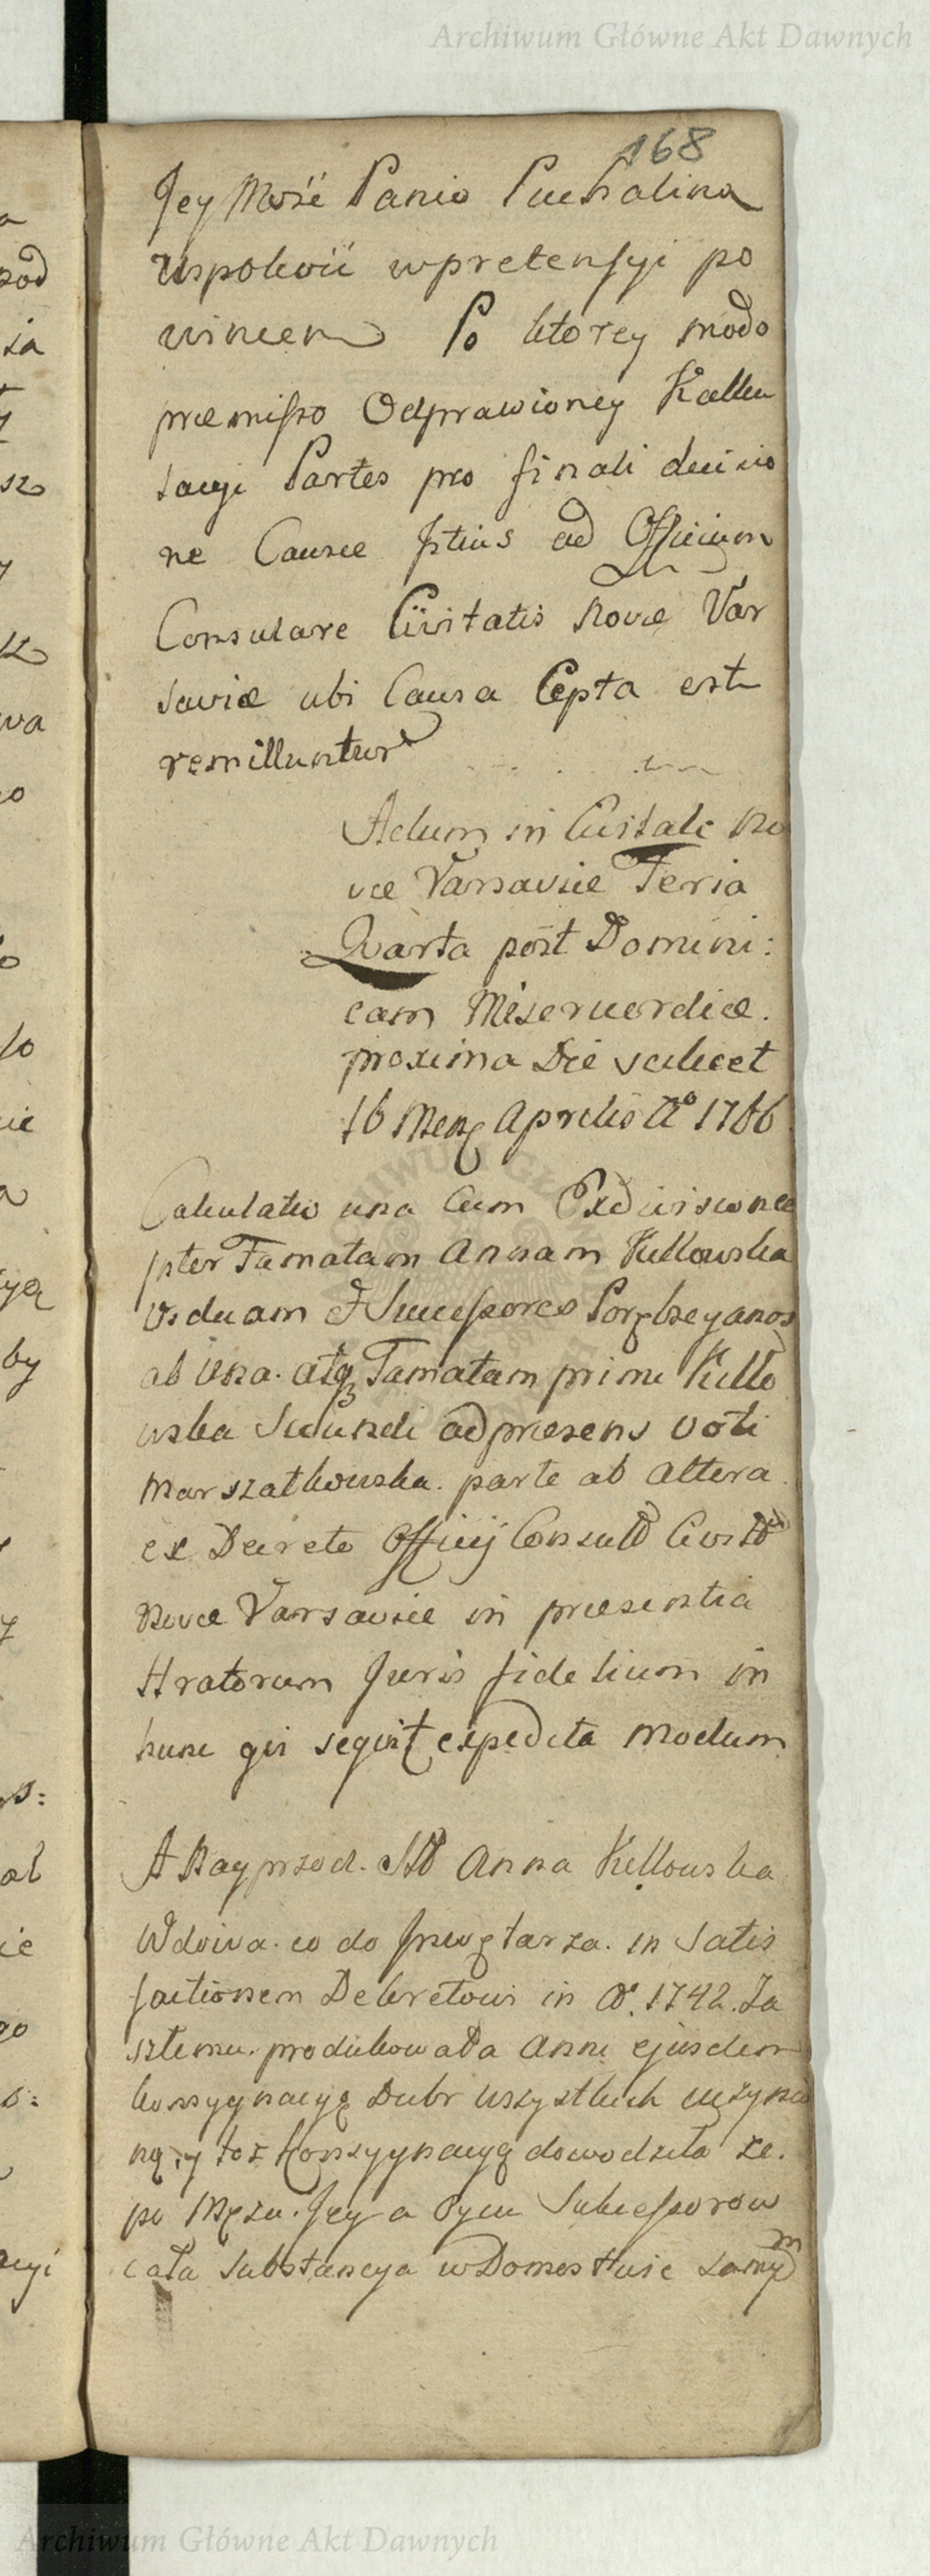 Archiwum Główne Akt Dawnych
168
Jey Mość Pani Puchalina
Uspokoić w pretensyi po
winien Po ktorey modo
præmisso Odprawioney Kalku
lacyi Partes pro finali decisio
ne Causæ Istius ad Officium
Consulare Civitatis Novæ Var
saviæ ubi Causa Cepta est
remittuntur
Actum in Civitate No
væ Varsaviæ Feria
Qvarta post Domini:
cam Misericordiæ.
proxima Die scilicet
16 Mens Aprilis A° 1766
Calculatio una Cum Exdivisione
Inter Famatam Annam Kittowska
Viduam & Successores Porębscyanos
ab Una. atq Famatam primi Kitto
wska Secundi ad præsens Voti
Marszałkowska. parte ab altera
ex Decreto Officij Consul Civit
Novæ Varsaviæ in præsentia
Hratorum Juris fidelium in
hunc qvi seqvit expedita Modum
A Nayprzod. Anna Kittowska
Wdowa. co do Inwętarza. in Satis
factionem Dekretowi in A°. 1742. Za
szłemu. produkowała Anni ejusdem
konsygnacyą Dubr wszystkich uczynio
ną, y toż Konsygnacyą dowodziła że.
po Mężu. Jey a Oycu Sukcessorow
cała Substancya w Domostwie samym
Archiwum Główne Akt Dawnych